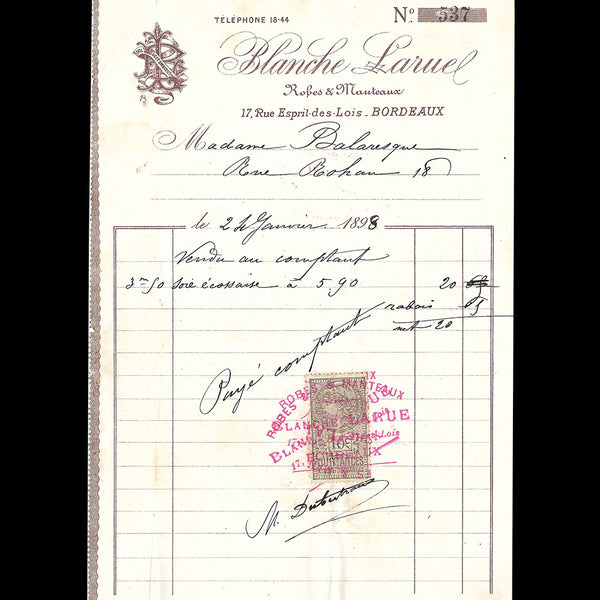 TÉLÉPHONE 18-44
Nº 537
Blanche Larue
Robes & Manteaux
17, Rue Esprit-des-Lois - BORDEAUX
Madame Balaresque
Rue Rohan 18
le 24 Janvier 1898
Vendu au comptant
3m50 soie écossaise à 5.90 20
rabais
net 20
Payé comptant
ROBES & MANTEAUX
BLANCHE LARUE
BORDEAUX
10c